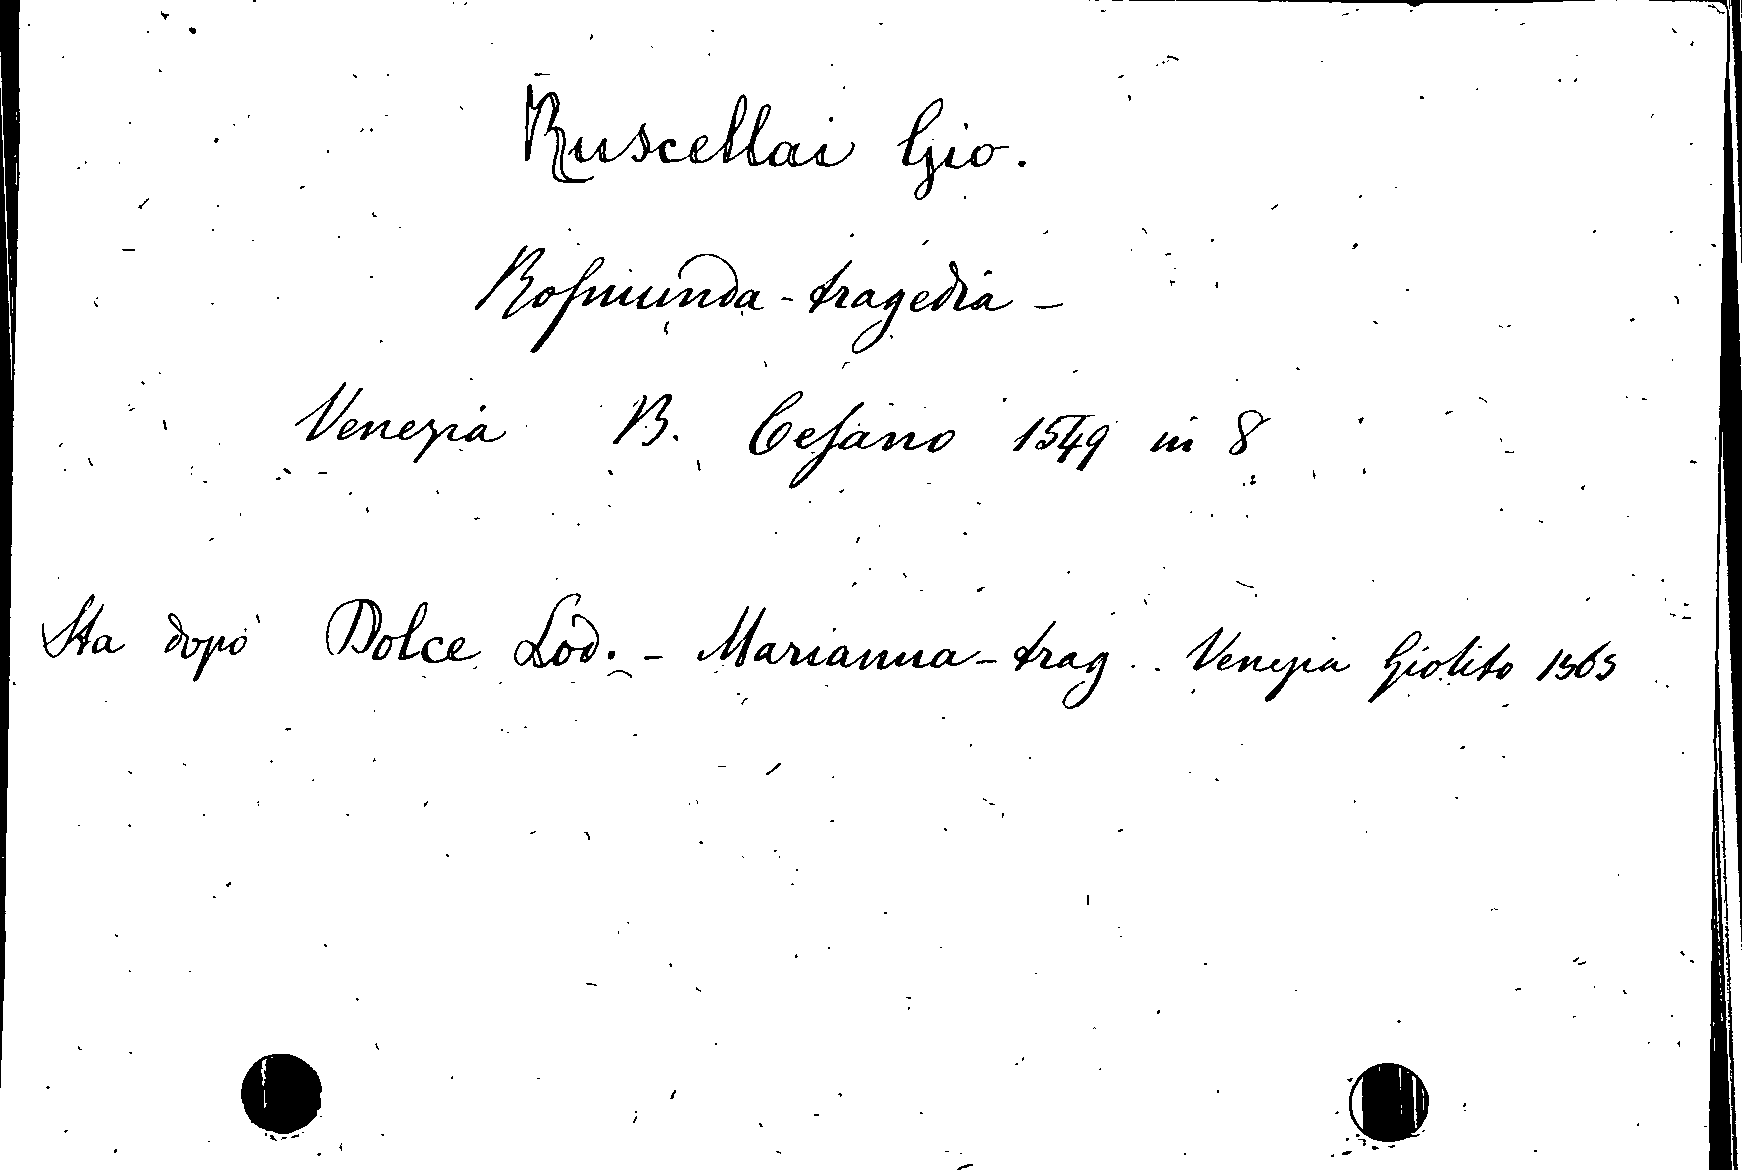 Ruscellai Gio.
Rosmunda - tragedia -
Venezia B. Cesano 1549 in 8
Sta dopo Dolce Lod. - Marianna - trag.. Venezia Giolito 1565